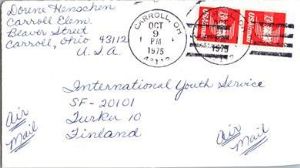 Dorene Henschen
Carroll Elem.
Beaver Street
Carroll, Ohio 43112
U.S.A
CARROLL, OH
OCT
9
PM
1975
43112
International Youth Service
SF-20101
Turku 10
Finland
Air
Mail
Air
Mail